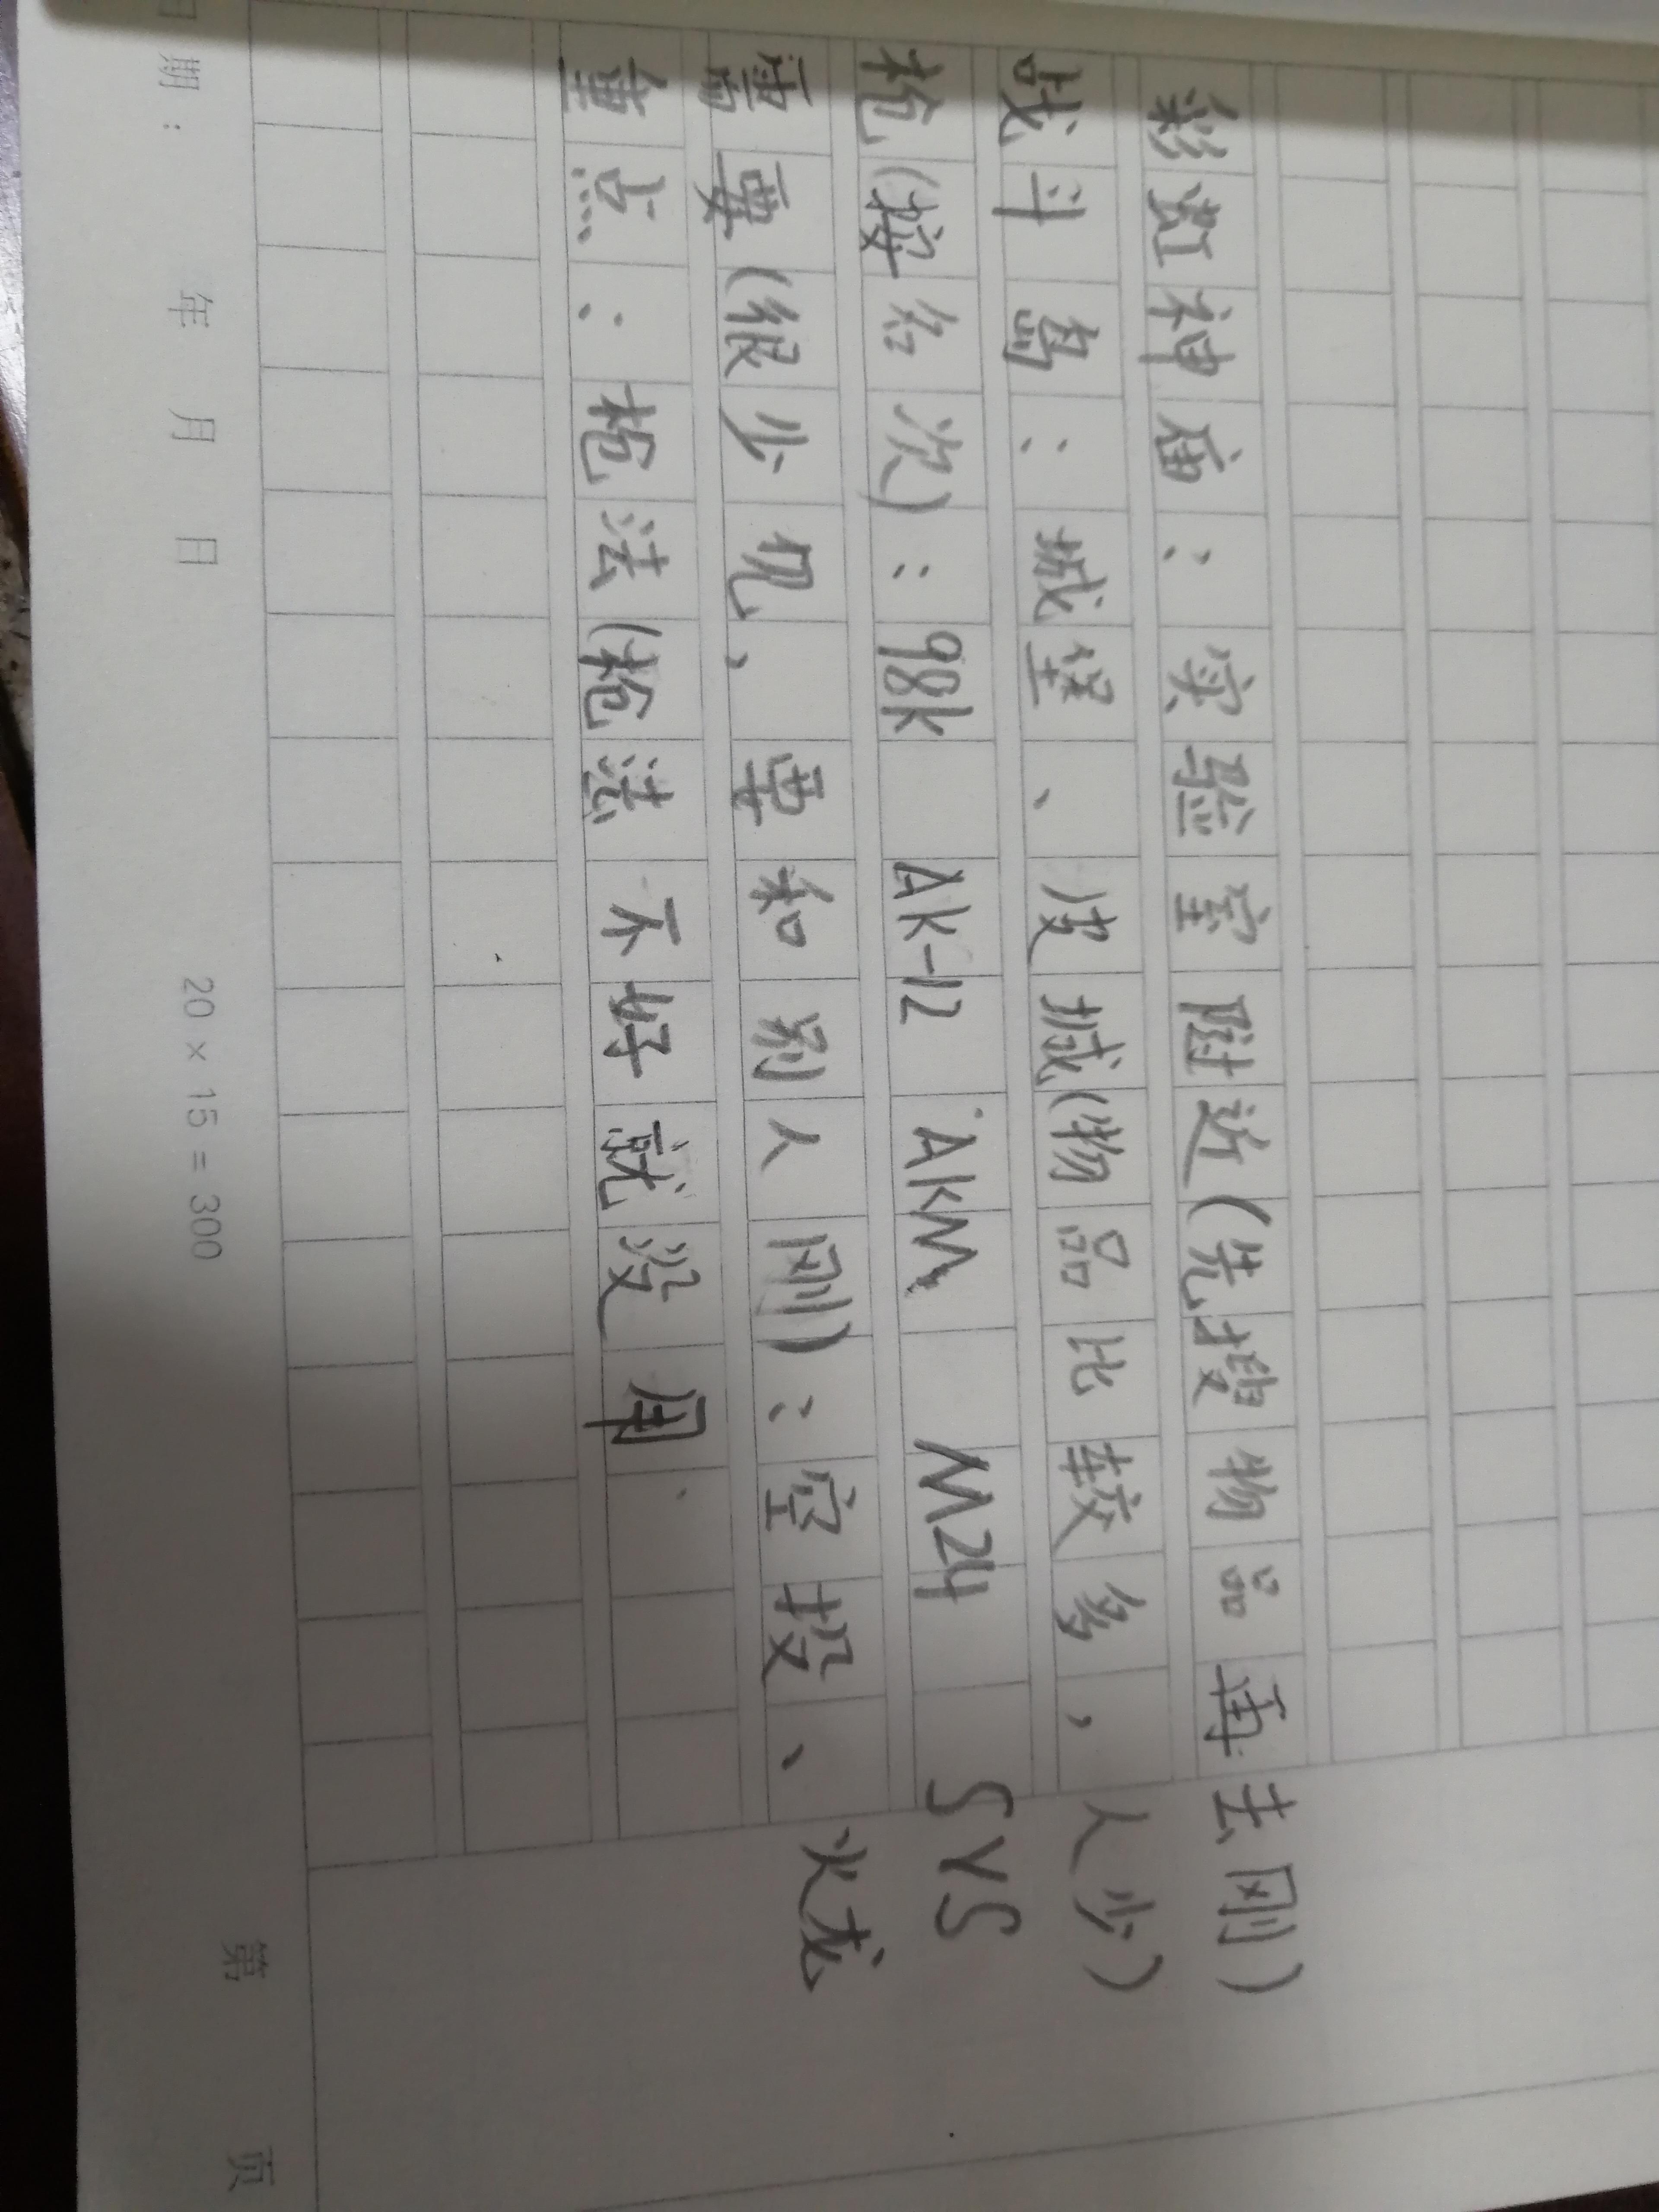 彩虹神庙：实验室附近(先搜物品再去刚)
战斗岛：城堡、皮城(物品比较多，人少)
枪(按名次)：98k AK-12 AKM M24 SVS
需要(很少见、要和别人刚)：空投、火龙
重点：枪法(枪法不好就没用、
日期： 年 月 日 20×15=300 第 页